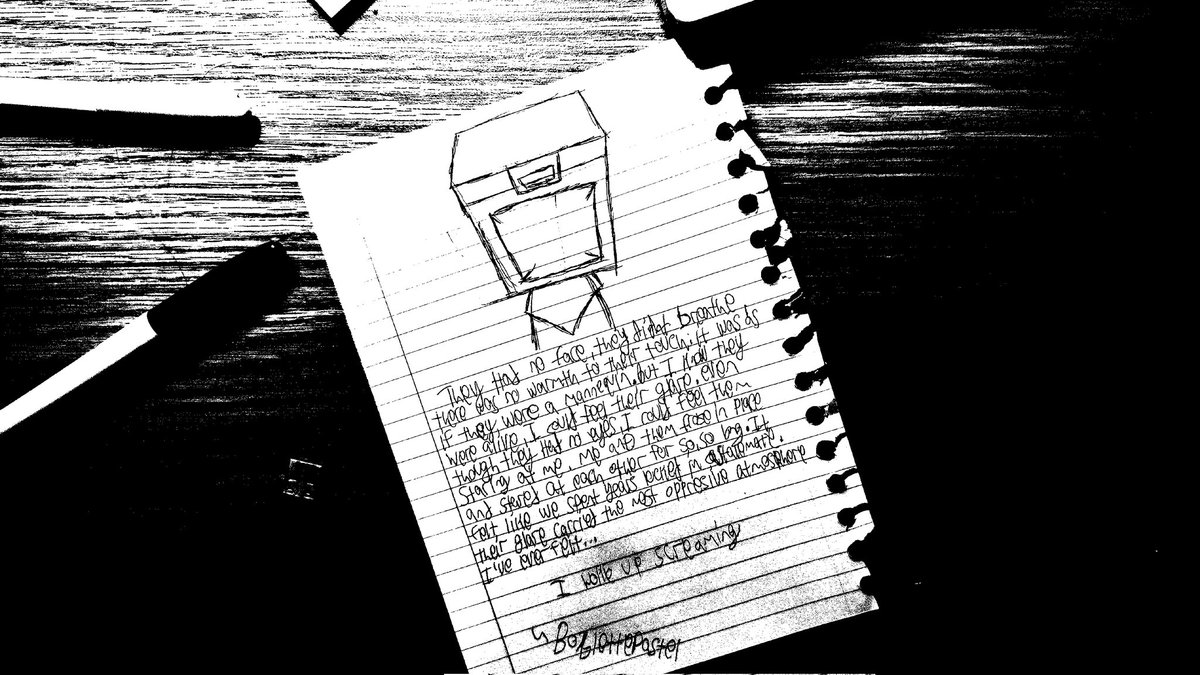 They Had no face, they didnt breathe
there was no warmth to their touch. it was as
if they were a mannequin. but I knew they
were alive, I could feel their glare, even
though they Had no eyes, I could feel them
staring at me. Me and them froze in Place
and stared at each other for so so long. It
felt like we spent years locked in
their glare carried the most oppresive atmosphere
I've ever felt...
I woke up screaming